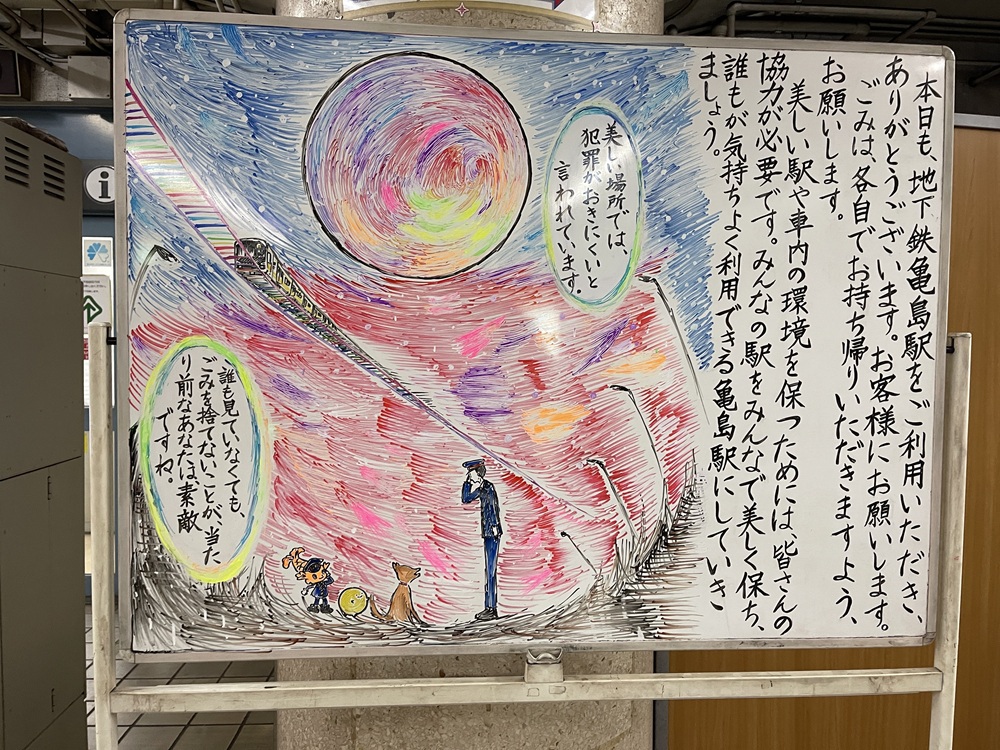 本日も、地下鉄亀島駅をご利用いただき、
ありがとうございます。お客様にお願いします。
ごみは、各自でお持ち帰りいただきますよう、
お願いします。
美しい駅や車内の環境を保つためには、皆さんの
協力が必要です。みんなの駅をみんなで美しく保ち、
誰もが気持ちよく利用できる亀島駅にしていき
ましょう。
美しい場所では、
犯罪がおきにくいと
言われています。
誰も見ていなくても、
ごみを捨てないことが、当た
り前なあなたは、素敵
ですね。